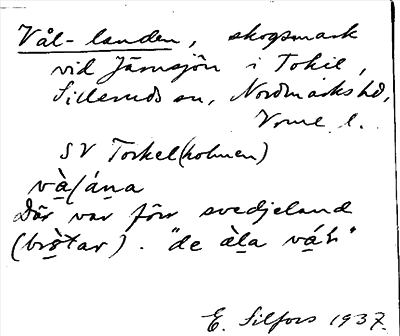 Vål-landen, skogsmark
vid Järnsjön i Tokil,
Silleruds sn, Nordmarks hd,
Vrml l.
SV Torkel(holmen)
Där var förr svedjeland
(brötar). "de
E. Silfors 1937.